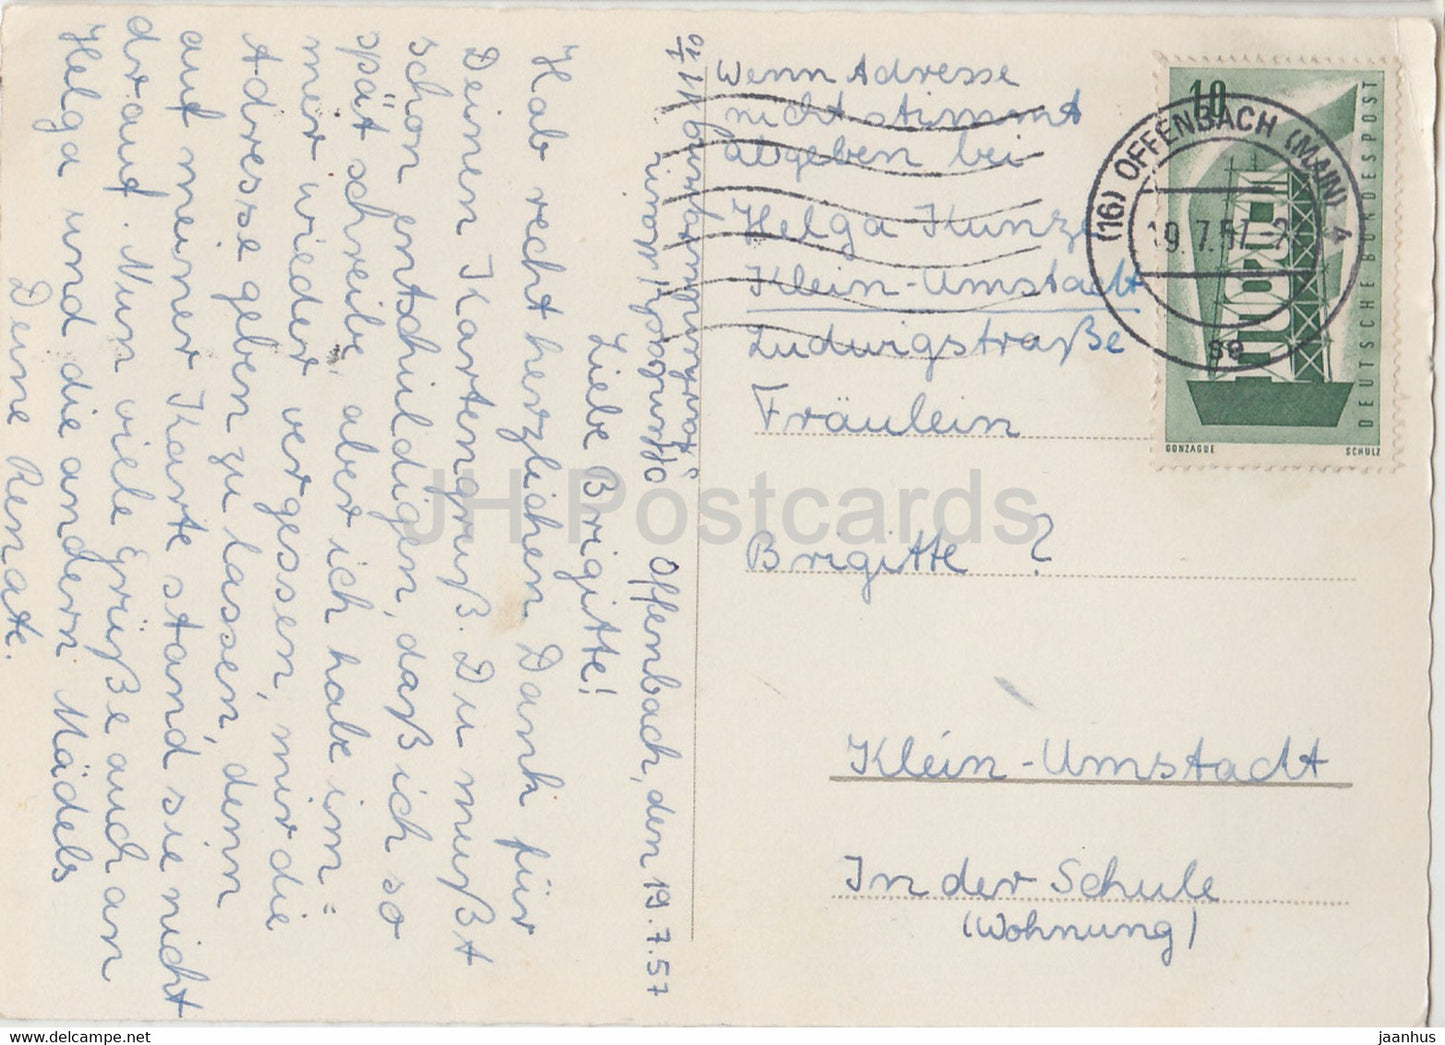 Offenbach, den 19.7.57
Liebe Brigitte!
Hab recht herzlichen Dank für
Deinen Kartengruß. Du mußt
schon entschuldigen, daß ich so
spät schreibe, aber ich habe im=
mer wieder vergessen, mir die
Adresse geben zu lassen, denn
auf meiner Karte stand sie nicht
drauf. Nun viele Grüße auch an
Helga und die andern Mädels
Deine Renate.
Offenbach/Main
Wenn Adresse
nicht stimmt
abgeben bei
Helga Kunz
Klein-Umstadt
Ludwigstraße
Fräulein
Brigitte ?
Klein-Umstadt
In der Schule
(Wohnung)
10
DEUTSCHE BUNDESPOST
EUROPA
GONZAGUE
SCHULZ
(16) OFFENBACH (MAIN) 4
19.7.57
JH Postcards
www.delcampe.net
jaanhus